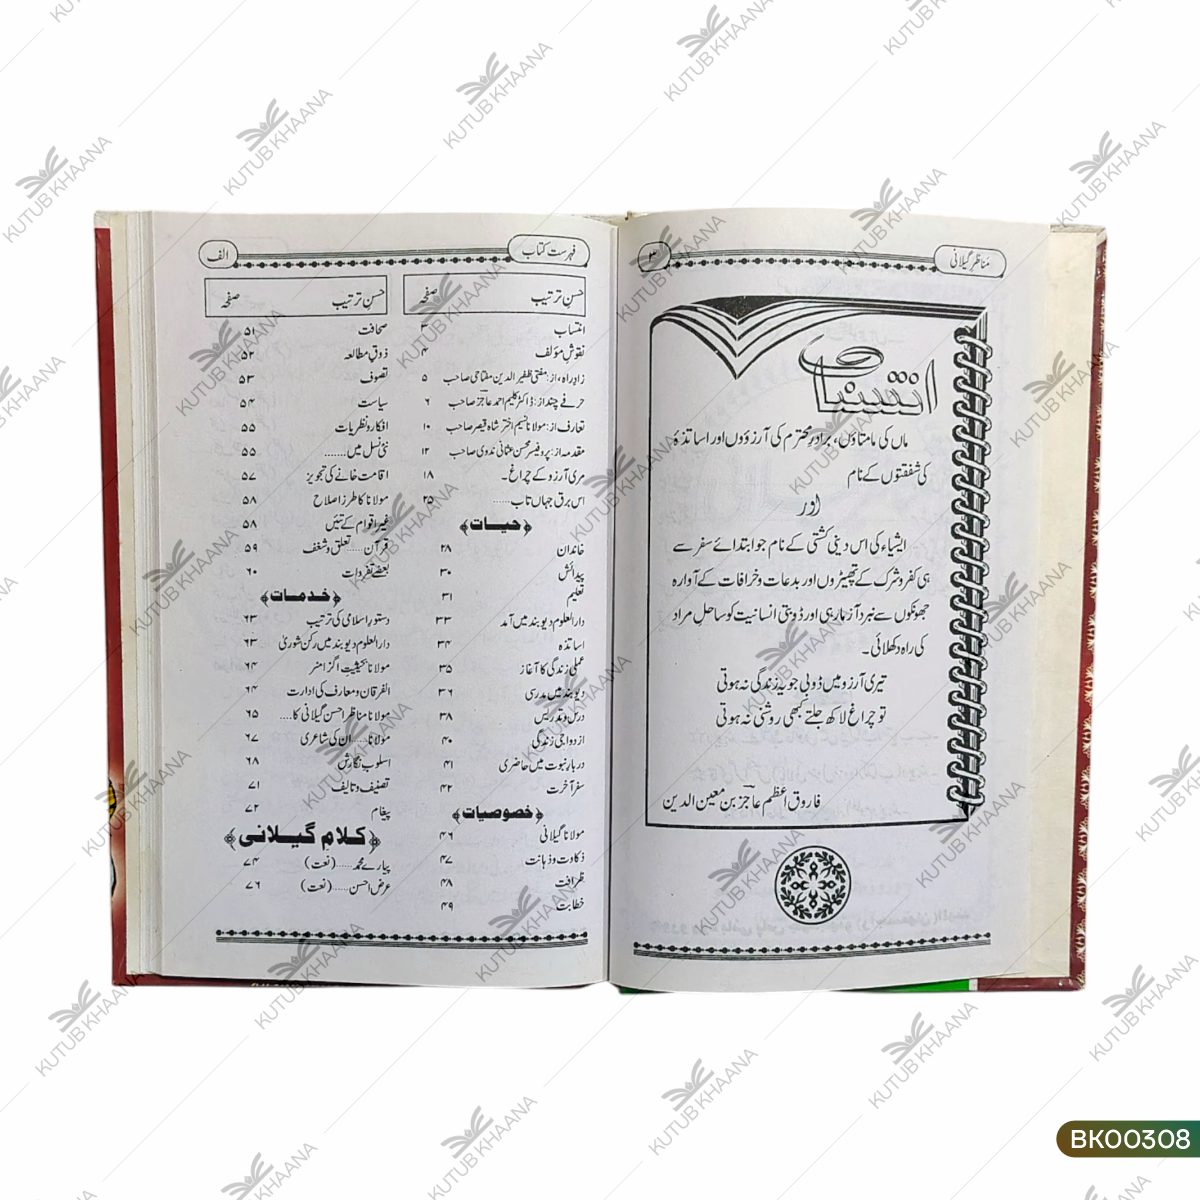 مناظر گیلانی
۳
انتساب
ماں کی مامتاؤں، برادر محترم کی آرزؤوں اور اساتذۂ
کی شفقتوں کے نام
اور
ایشیاء کی اس دینی کشتی کے نام جو ابتدائے سفر سے
ہی کفر و شرک کے تھپیڑوں اور بدعات و خرافات کے آوارہ
جھونکوں سے نبرد آزما رہی اور ڈوبتی انسانیت کو ساحل مراد
کی راہ دکھلائی۔
تیری آرزو میں ڈوبی جو یہ زندگی نہ ہوتی
تو چراغ لاکھ جلتے کبھی روشنی نہ ہوتی
فاروق اعظم عاجز بن معین الدین
فہرست کتاب
الف
حسن ترتیب صفحہ
انتساب ۳
نقوش مؤلف ۴
زادِ راہ، از: مفتی ظفیر الدین مفتاحی صاحب ۵
حرفے چند از: ڈاکٹر کلیم احمد عاجز صاحب ۶
تعارف از: مولانا نسیم اختر شاہ قیصر صاحب ۱۰
مقدمہ از: پروفیسر محسن عثمانی ندوی صاحب ۱۲
مری آرزو کے چراغ۔ ۱۸
اس برق جہاں تاب...... ۲۵
﴿حیات﴾
خاندان ۲۸
پیدائش ۳۰
تعلیم ۳۱
دارالعلوم دیوبند میں آمد ۳۳
اساتذہ ۳۴
عملی زندگی کا آغاز ۳۵
دیوبند میں مدرسی ۳۶
درس و تدریس ۳۸
ازدواجی زندگی ۴۰
دربار نبوت میں حاضری ۴۱
سفر آخرت ۴۲
﴿خصوصیات﴾
مولانا گیلانی ۴۶
ذکاوت و ذہانت ۴۷
ظرافت ۴۸
خطابت ۴۹
حسن ترتیب صفحہ
صحافت ۵۱
ذوق مطالعہ ۵۲
تصوف ۵۳
سیاست ۵۴
افکار و نظریات ۵۵
نئی نسل میں....... ۵۵
اقامت خانے کی تجویز ۵۷
مولانا کا طرز اصلاح ۵۸
غیر اقوام کے تئیں ۵۸
قرآن ..... تعلق و شغف ۵۹
بعض تفردات ۶۰
﴿خدمات﴾
دستور اسلامی کی ترتیب ۶۳
دارالعلوم دیوبند میں رکن شوریٰ ۶۳
مولانا بحیثیت اگزامنر ۶۴
الفرقان و معارف کی ادارت ۶۴
مولانا مناظر احسن گیلانی کا.... ۶۵
مولانا..... ان کی شاعری ۶۷
اسلوب نگارش ۶۸
تصنیف و تالیف ۷۱
پیغام ۷۲
﴿کلام گیلانی﴾
پیارے محمد ..... (نعت) ۷۴
عرض احسن ..... (نعت) ۷۶
KUTUB KHAANA
BK00308